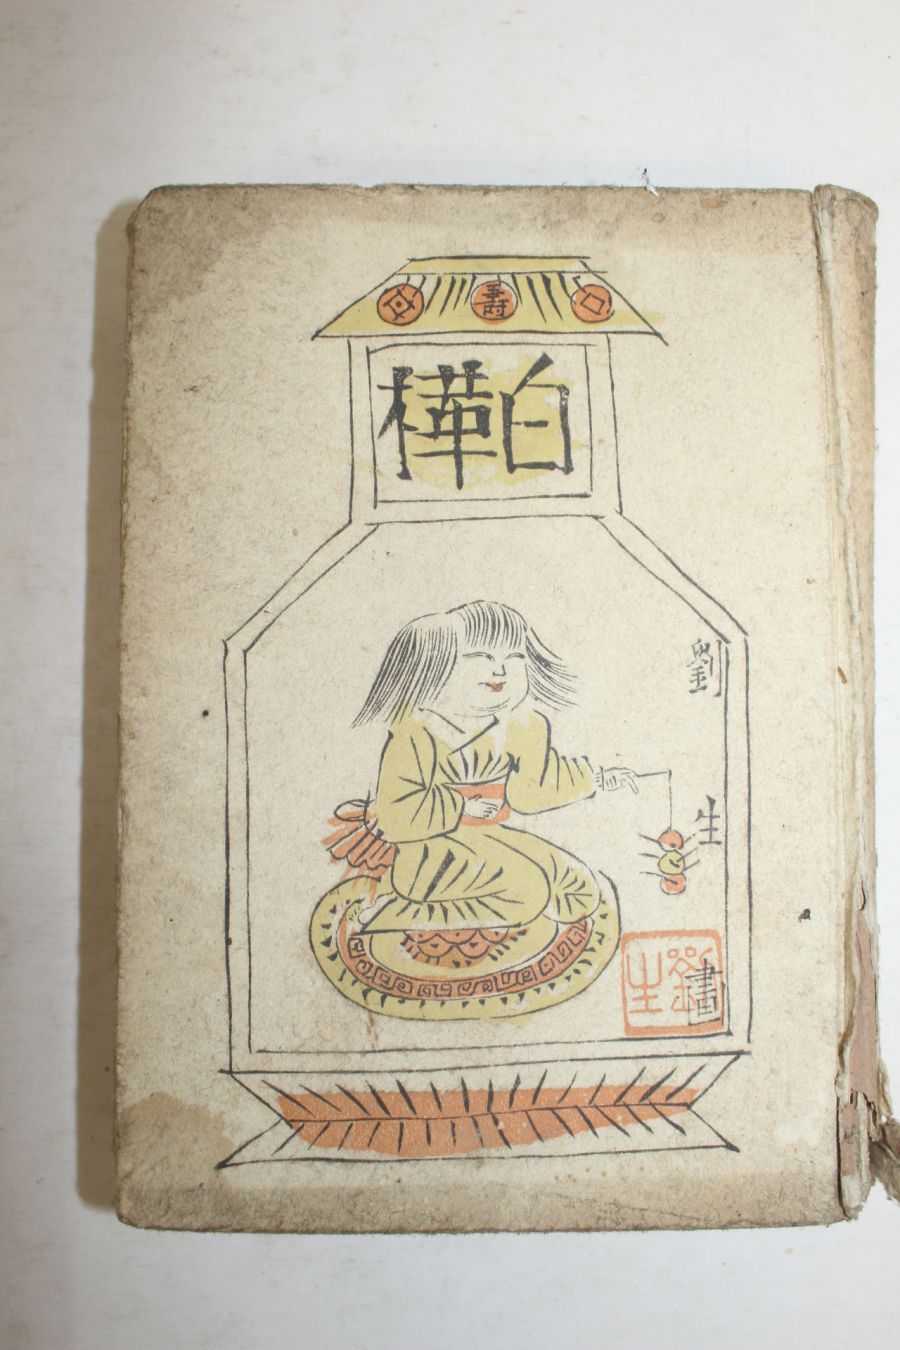 壽
白樺
劉生畫
劉生